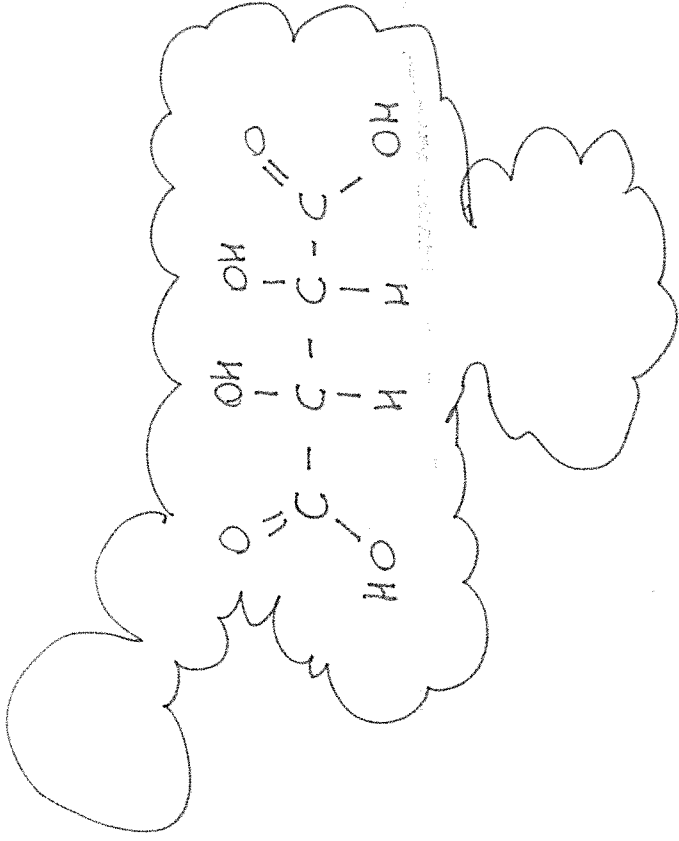 O OH OH O
C - C - C - C
HO H H OH